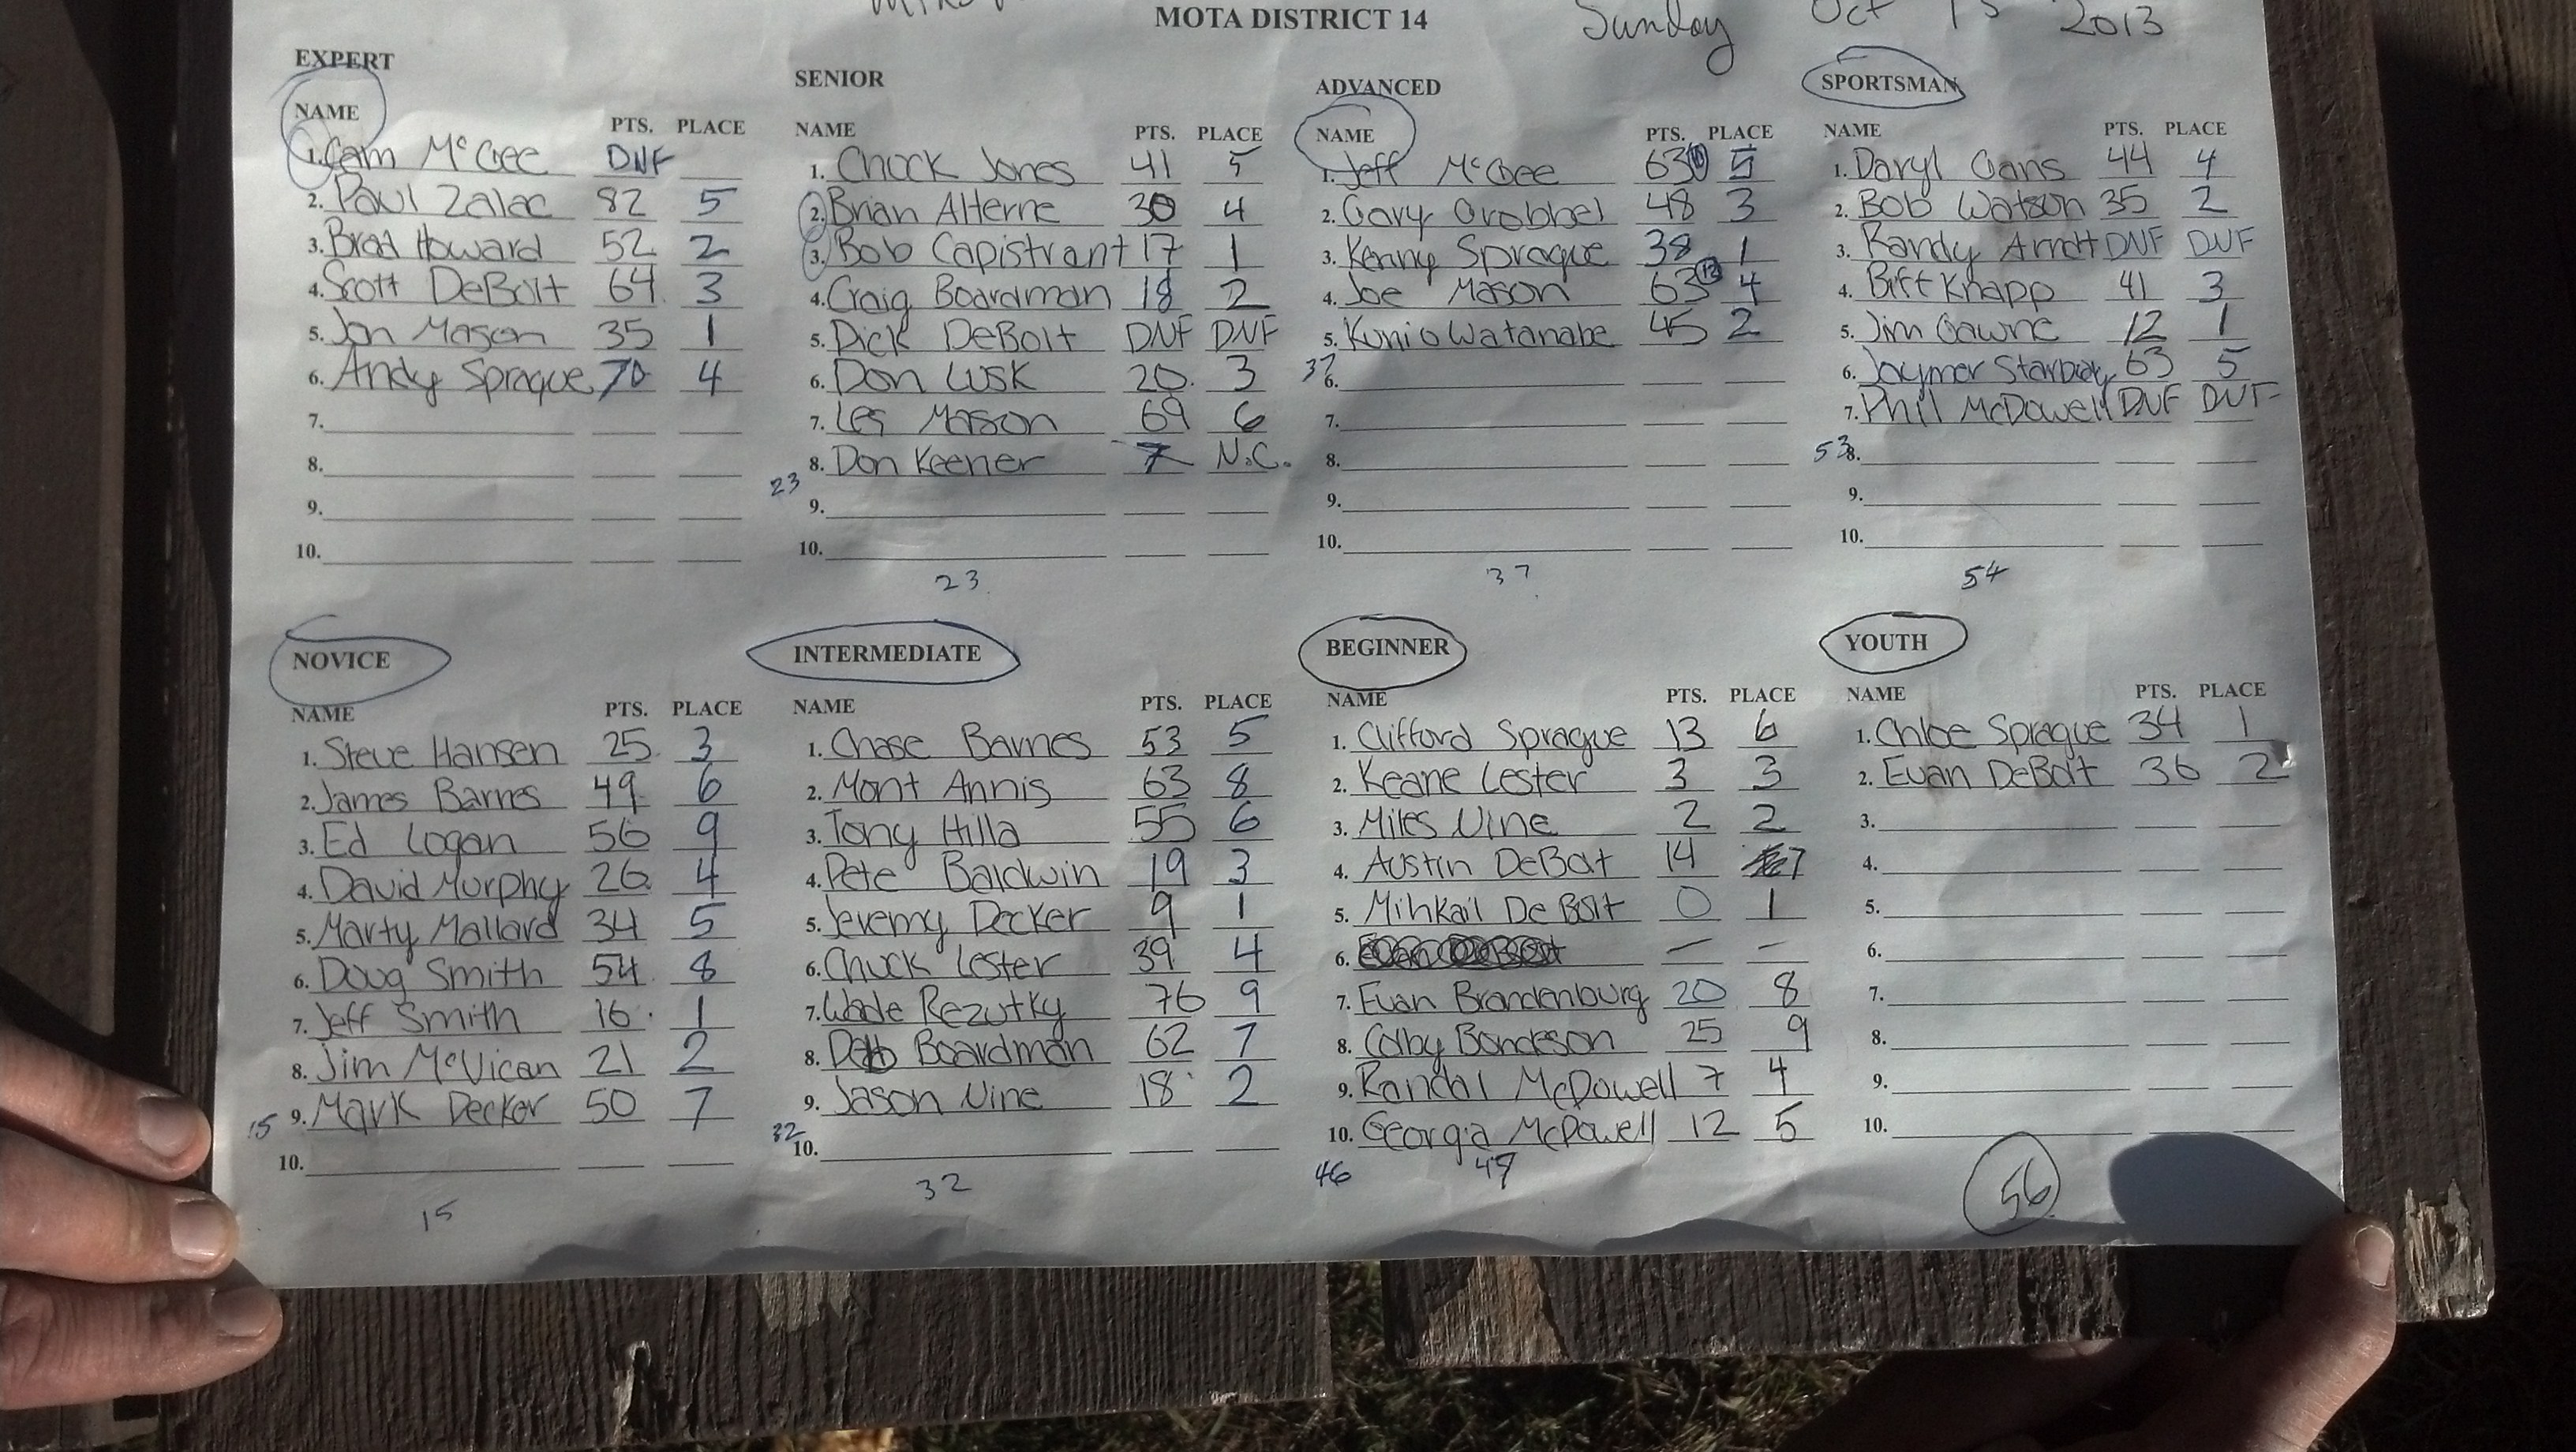 MOTA DISTRICT 14
Sunday Oct 13 2013
EXPERT
NAME PTS. PLACE
1. Cam McGee DNF
2. Paul Zalac 82 5
3. Brad Howard 52 2
4. Scott DeBolt 64 3
5. Jon Mason 35 1
6. Andy Sprague 70 4
7.
8.
9.
10.
SENIOR
NAME PTS. PLACE
1. Chuck Jones 41 5
2. Brian Alterne 30 4
3. Bob Capistrant 17 1
4. Craig Boardman 18 2
5. Dick DeBolt DNF DNF
6. Don Lusk 20 3
7. Les Mason 69 6
8. Don Keener 7 N.C.
23
9.
10.
23
ADVANCED
NAME PTS. PLACE
1. Jeff McGee 63 10 5
2. Gary Grobbel 48 3
3. Kenny Sprague 38 1
4. Joe Mason 63 12 4
5. Kunio Watanabe 45 2
37
6.
7.
8.
9.
10.
37
SPORTSMAN
NAME PTS. PLACE
1. Daryl Gans 44 4
2. Bob Watson 35 2
3. Randy Arndt DNF DNF
4. Biff Knapp 41 3
5. Jim Gawne 12 1
6. Jaymer 63 5
7. Phil McDowell DNF DNF
53
8.
9.
10.
54
NOVICE
NAME PTS. PLACE
1. Steve Hansen 25 3
2. James Barnes 49 6
3. Ed Logan 56 9
4. David Murphy 26 4
5. Marty Mallard 34 5
6. Doug Smith 54 8
7. Jeff Smith 16 1
8. Jim McVican 21 2
15 9. Mark Decker 50 7
10.
15
INTERMEDIATE
NAME PTS. PLACE
1. Chase Barnes 53 5
2. Mont Annis 63 8
3. Tony Hilla 55 6
4. Pete Baldwin 19 3
5. Jeremy Decker 9 1
6. Chuck Lester 39 4
7. Wade Rezutky 76 9
8. Deb Boardman 62 7
9. Jason Nine 18 2
32
10.
32
BEGINNER
NAME PTS. PLACE
1. Clifford Sprague 13 6
2. Keane Lester 3 3
3. Miles Nine 2 2
4. Austin DeBolt 14 7
5. Mihkail DeBolt 0 1
6. — –
7. Evan Brandenburg 20 8
8. Colby Bondeson 25 9
9. Randal McDowell 7 4
10. Georgia McDowell 12 5
46 47
YOUTH
NAME PTS. PLACE
1. Chloe Sprague 34 1
2. Evan DeBolt 36 2
3.
4.
5.
6.
7.
8.
9.
10.
56